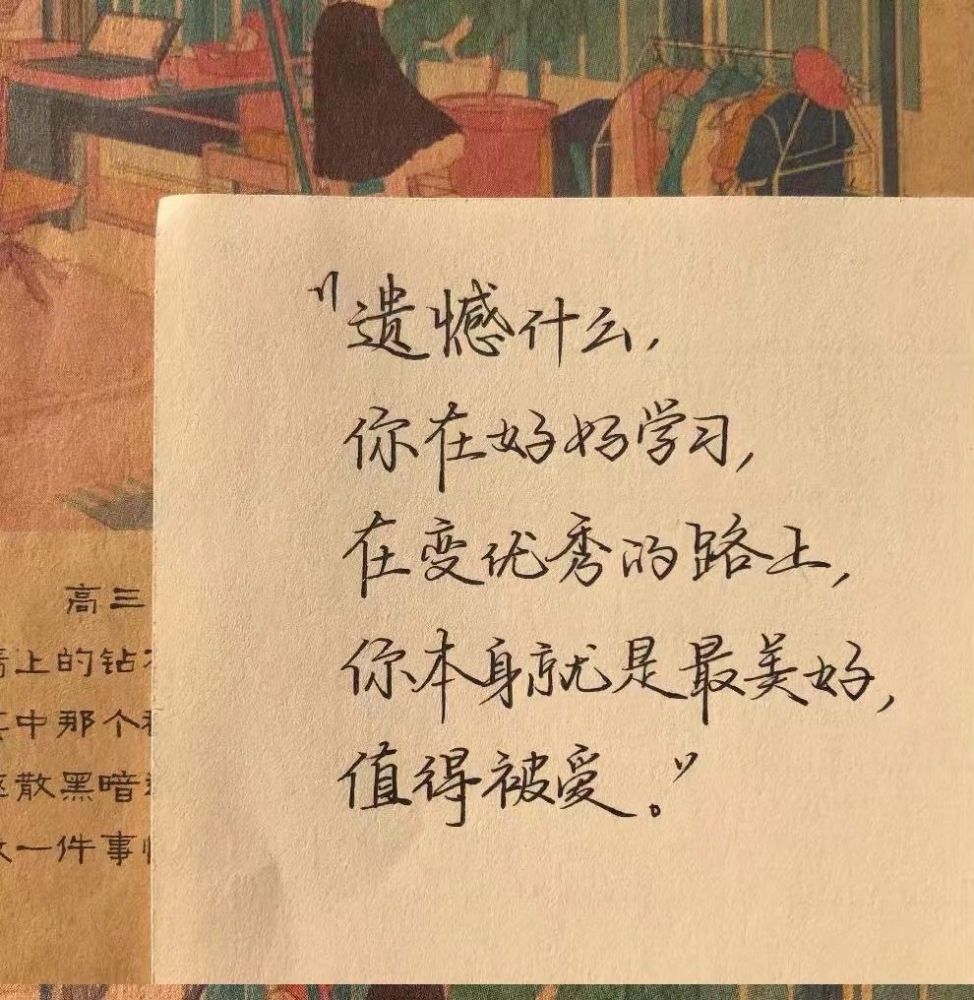 “遗憾什么，
你在好好学习，
在变优秀的路上，
你本身就是最美好，
值得被爱。”
高三
上的钻
中那个
散黑暗
一件事